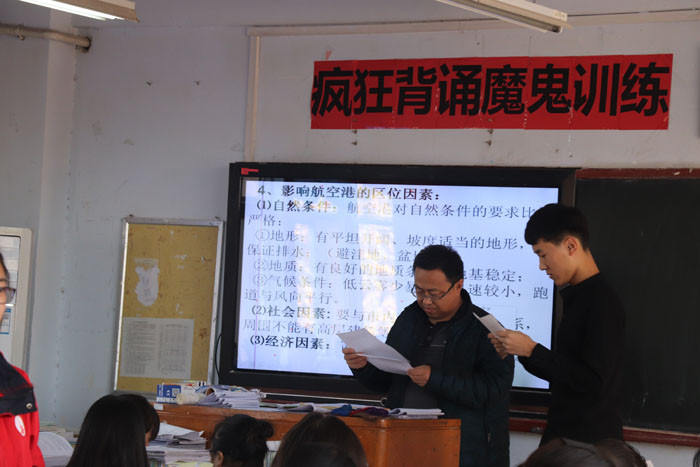 疯狂背诵魔鬼训练
4、影响航空港的区位因素:
(1)自然条件: 航空港对自然条件的要求比
严格:
①地形: 有平坦开阔、坡度适当的地形,
保证排水; (避洼地、盆
②地质: 有良好的地质条 地基稳定;
③气候条件: 低云雾少 速较小, 跑
道与风向平行。
(2)社会因素: 要与市内 系,
周围不能有高层建筑
(3)经济因素: